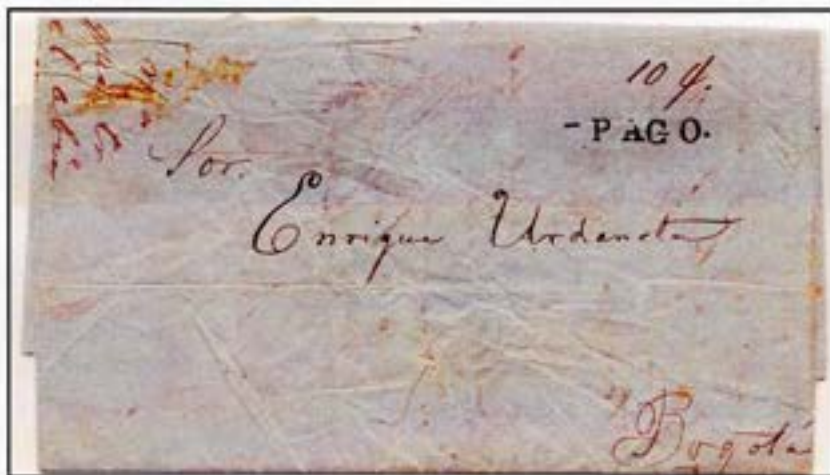 10 ȼ.
- PAGO.
Sor.
Enrique Urdaneta
Bogotá